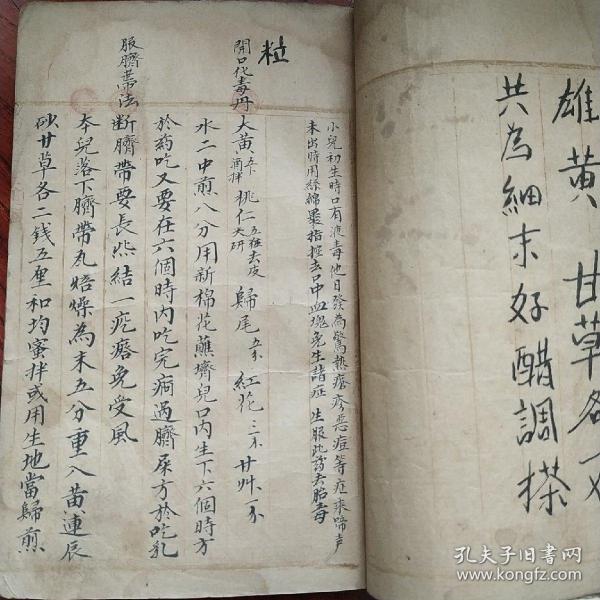 雄黃 甘草各
共為細末好醋調搽
粒
小兒初生時口有液毒他日發為驚熱瘡疹惡痘等症乘啼声
未出時用綿裹指挖去口中血塊免生諸症 生服此药去胎毒
開口化毒丹
大黃 五卜 酒拌 桃仁 五粒去皮尖研 歸尾 五卜 紅花 三卜 甘艸 一卜
水二中煎八分用新棉花蘸擠兒口內生下六個時方
於药吃又要在六個時內吃完瀉過臍屎方於吃乳
断臍帶要長些結一疙瘩免受風
服臍帶法
本兒落下臍帶丸焙燥為末五分重入黃連辰
砂甘草各二錢五厘和均蜜拌或用生地當歸煎
孔夫子旧書网
www.kongfz.com